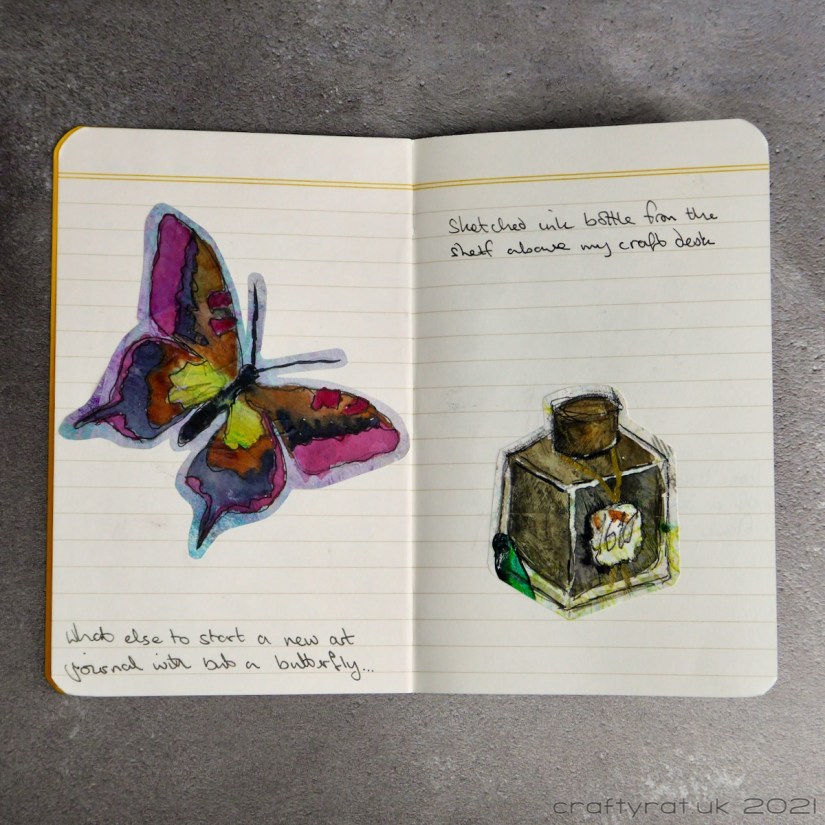 Sketched ink bottle from the
shelf above my craft desk
1670
What else to start a new art
journal with but a butterfly...
craftyrat.uk 2021